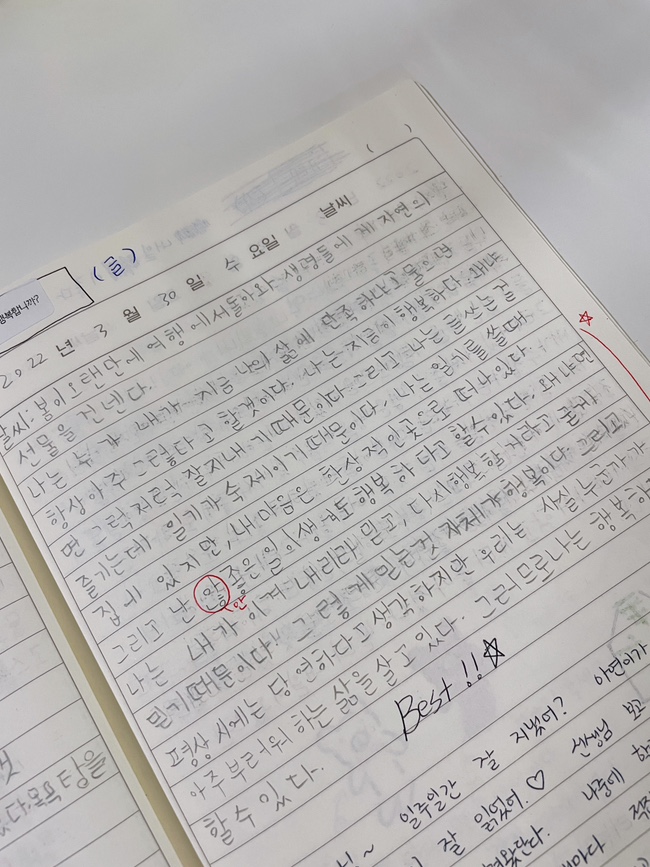 행복합니까?
(글)
( )
2022 년 3 월 30 일 수 요일 날씨
날씨: 봄이 오랜만에 여행에서 돌아와 생명들에게 자연의
선물을 건넨다.
나는 누가 내가 지금 나의 삶에 만족하냐고 물으면
항상 아주 그렇다고 할것이다. 나는 지금이 행복하다. 왜냐
면 그럭저럭 잘지내기 때문이다. 그리고 나는 글쓰는걸
즐기는데 일기가 숙제이기 때문이다. 나는 일기를 쓸때
집에 있지만, 내 마음은 환상적인 곳으로 떠나있다.
그리고 난 안좋은 일이 생겨도 행복하다고 할수있다. 왜냐면
안
나는 내가 이겨내리라 믿고, 다시 행복할 거라고 굳게
믿기 때문이다. 그렇게 믿는것 자체가 행복이다. 그리고
평상시에는 당연하다고 생각하지만 우리는 사실 누군가가
아주 부러워 하는 삶을 살고 있다. 그러므로 나는 행복하
할 수 있다.
Best!!
일주일간 잘 지냈어? 아연이가
잘 읽었어.♡ 선생님 보고
나중에